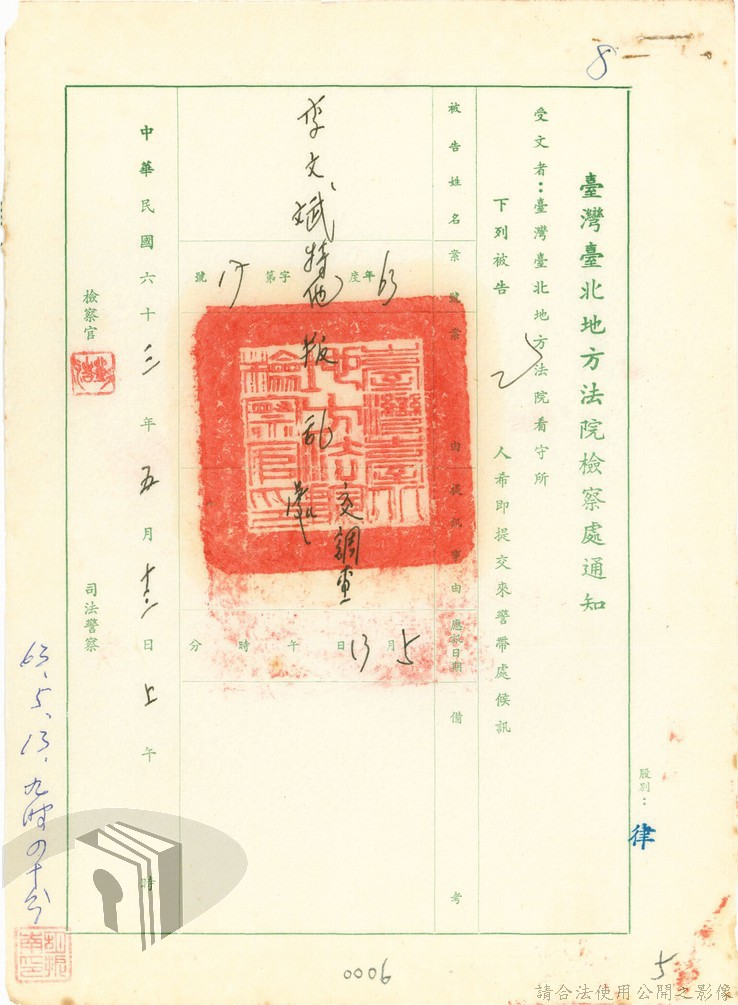 8
臺灣臺北地方法院檢察處通知
股別：律
受文者：臺灣臺北地方法院看守所
下列被告
人希即提交來警帶處候訊
被告姓名
案號
案由
提訊事由
應訊日期
備考
63年度 字第 號
5月13日 午 時 分
李文斌
叛亂
交調查
臺灣臺北地方法院檢察官印
檢察官
司法警察
中華民國六十三年五月十三日上午 時
63.5.13.九時四十分
0006
5
請合法使用公開之影像